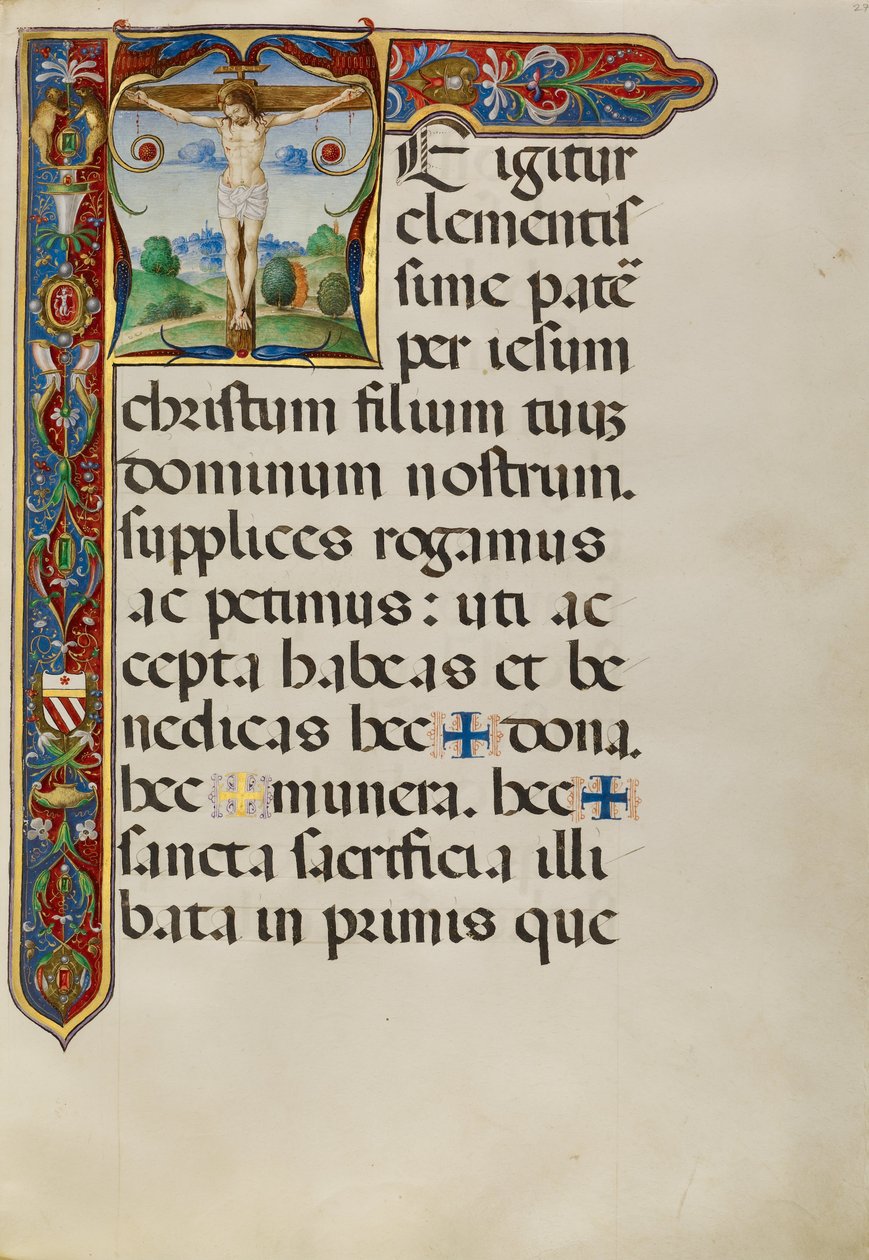 27
TE igitur
clementis
sime patē
per iesum
christum filium tuuꝫ
dominum nostrum.
supplices rogamus
ac petimus: uti ac
cepta habeas et be
nedicas hec ✠ dona.
hec ✠ munera. hec ✠
sancta sacrificia illi
bata in primis que